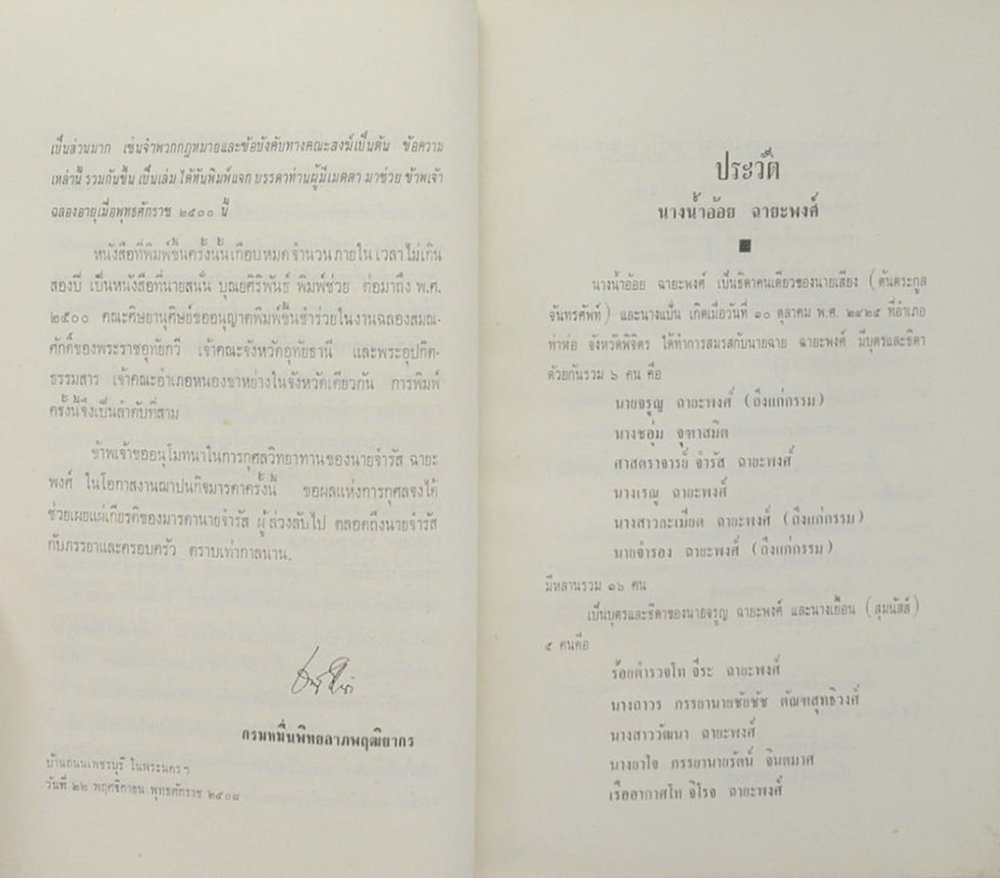 เป็นส่วนมาก เช่นจำพวกกฎหมายและข้อบังคับทางคณะสงฆ์เป็นต้น ข้อความ
เหล่านี้ รวมกันขึ้น เป็นเล่ม ได้ทันพิมพ์แจก บรรดาท่านผู้มีเมตตา มาช่วย ข้าพเจ้า
ฉลองอายุเมื่อพุทธศักราช ๒๕๐๐ นี้
หนังสือที่พิมพ์ขึ้นครั้งนั้นเกือบหมดจำนวนภายใน เวลาไม่เกิน
สองปี เป็นหนังสือที่นายสนั่น บุณยศิริพันธุ์ พิมพ์ช่วย ต่อมาถึง พ.ศ.
๒๕๐๐ คณะศิษยานุศิษย์ขออนุญาตพิมพ์ขึ้นชำร่วยในงานฉลองสมณ-
ศักดิ์ของพระราชอุทัยกวี เจ้าคณะจังหวัดอุทัยธานี และพระอุปกิต-
ธรรมสาร เจ้าคณะอำเภอหนองขาหย่างในจังหวัดเดียวกัน การพิมพ์
ครั้งนี้จึงเป็นลำดับที่สาม
ข้าพเจ้าขออนุโมทนาในการกุศลวิทยาทานของนายจำรัส ฉายะ
พงศ์ ในโอกาสงานฌาปนกิจมารดาครั้งนี้ ขอผลแห่งการกุศลจงได้
ช่วยเผยแผ่เกียรติของมารดานายจำรัส ผู้ล่วงลับไป ตลอดถึงนายจำรัส
กับภรรยาและครอบครัว ตราบเท่ากาลนาน.
กรมหมื่นพิทยลาภพฤฒิยากร
บ้านถนนเพชรบุรี ในพระนคร ฯ
วันที่ ๒๒ พฤศจิกายน พุทธศักราช ๒๕๐๔
ประวัติ
นางน้ำอ้อย ฉายะพงศ์
นางน้ำอ้อย ฉายะพงศ์ เป็นธิดาคนเดียวของนายเสียง (ต้นตระกูล
จันทรศัพท์) และนางแบ็น เกิดเมื่อวันที่ ๑๐ ตุลาคม พ.ศ. ๒๔๒๕ ที่อำเภอ
ท่าฬ่อ จังหวัดพิจิตร ได้ทำการสมรสกับนายฉาย ฉายะพงศ์ มีบุตรและธิดา
ด้วยกันรวม ๖ คน คือ
นายจรูญ ฉายะพงศ์ (ถึงแก่กรรม)
นางชอุ่ม จุฑาสมิต
ศาสตราจารย์ จำรัส ฉายะพงศ์
นางเรณู ฉายะพงศ์
นางสาวละเมียด ฉายะพงศ์ (ถึงแก่กรรม)
นายจำรอง ฉายะพงศ์ (ถึงแก่กรรม)
มีหลานรวม ๑๖ คน
เป็นบุตรและธิดาของนายจรูญ ฉายะพงศ์ และนางเยื้อน (สุมนัสส์)
๕ คนคือ
ร้อยตำรวจโท จีระ ฉายะพงศ์
นางถาวร ภรรยานายชัยชัช ตัณฑสุทธิวงศ์
นางสาววัฒนา ฉายะพงศ์
นางยาใจ ภรรยานายรัตน์ จินตมาศ
เรืออากาศโท จิโรจ ฉายะพงศ์